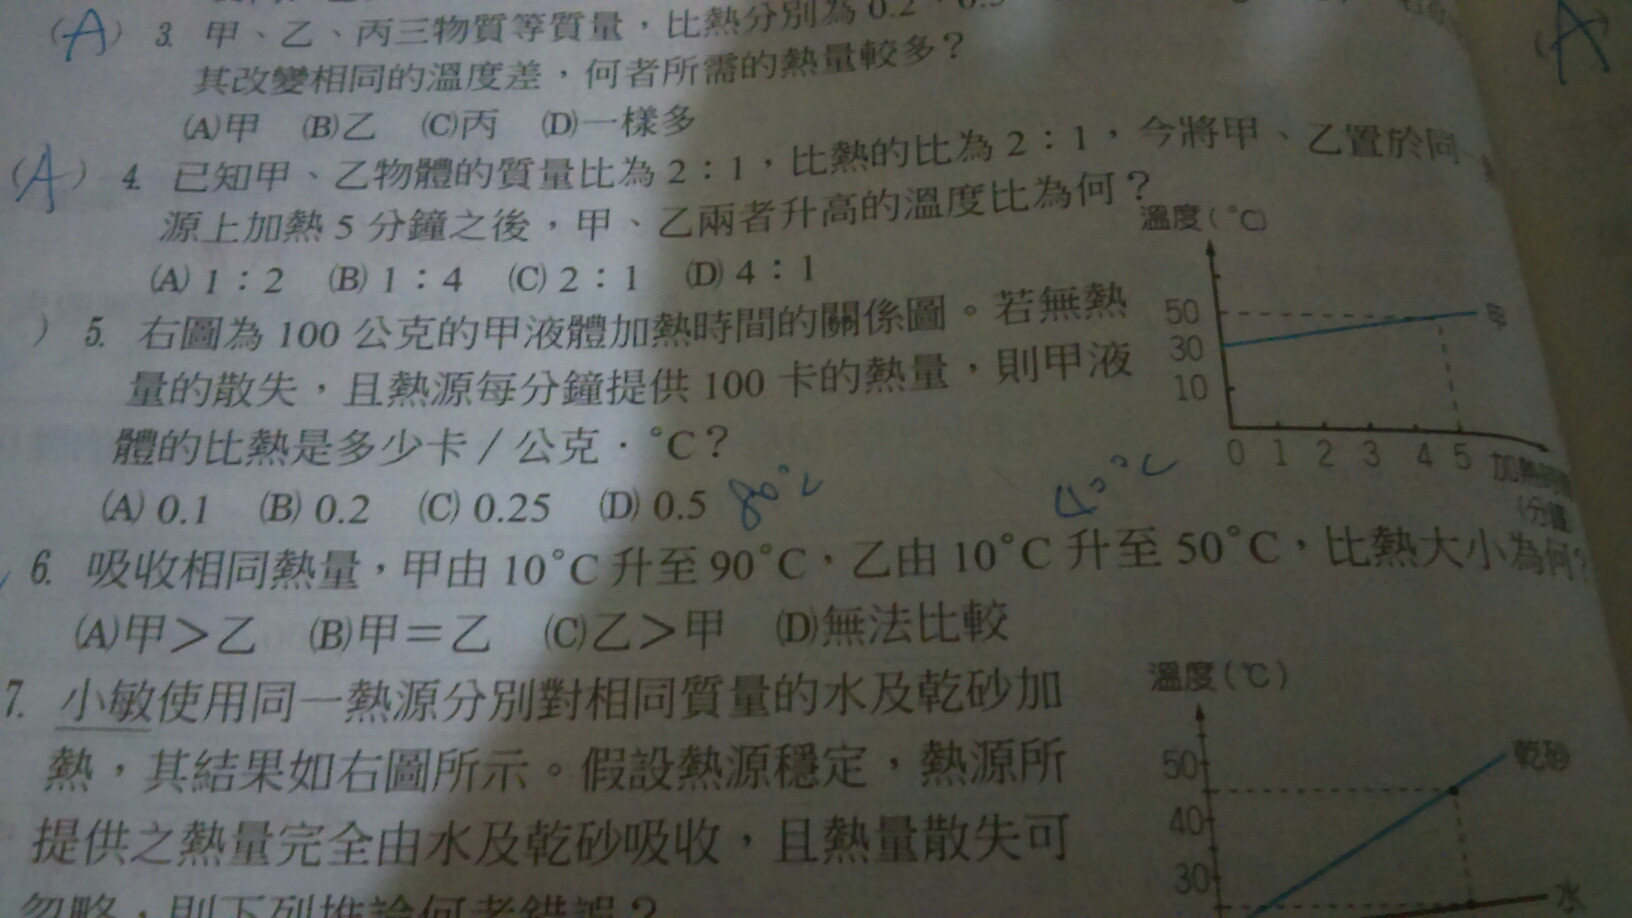 (A) 3. 甲、乙、丙三物質等質量，比熱分別為 0.2、0.3
其改變相同的溫度差，何者所需的熱量較多？
(A)甲 (B)乙 (C)丙 (D)一樣多
(A) 4. 已知甲、乙物體的質量比為 2：1，比熱的比為 2：1，今將甲、乙置於同一
源上加熱 5 分鐘之後，甲、乙兩者升高的溫度比為何？
(A) 1：2 (B) 1：4 (C) 2：1 (D) 4：1
) 5. 右圖為 100 公克的甲液體加熱時間的關係圖。若無熱
量的散失，且熱源每分鐘提供 100 卡的熱量，則甲液
體的比熱是多少卡／公克．°C？
(A) 0.1 (B) 0.2 (C) 0.25 (D) 0.5
溫度(°C)
50
30
10
甲
0 1 2 3 4 5 加熱時間
(分鐘
80°C 40°C
6. 吸收相同熱量，甲由 10°C 升至 90°C，乙由 10°C 升至 50°C，比熱大小為何？
(A)甲＞乙 (B)甲＝乙 (C)乙＞甲 (D)無法比較
7. 小敏使用同一熱源分別對相同質量的水及乾砂加
熱，其結果如右圖所示。假設熱源穩定，熱源所
提供之熱量完全由水及乾砂吸收，且熱量散失可
忽略，則下列推論何者錯誤？
溫度(℃)
50
40
30
乾砂
水
A